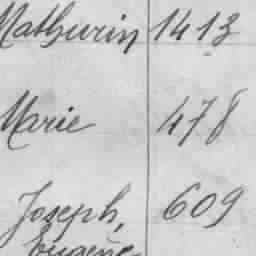 Mathurin 1413
Marie 478
Joseph, 609
Eugène